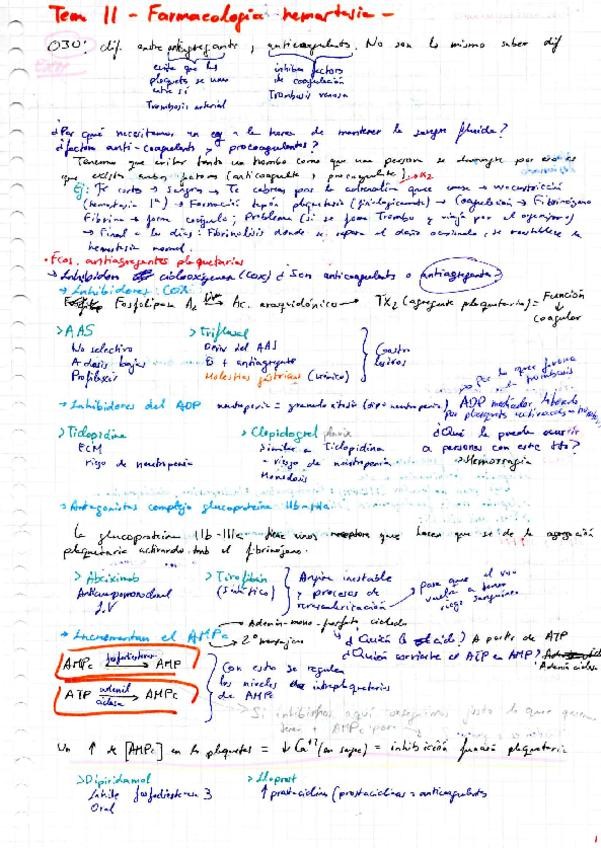 Tem 11 - Farmacología hemostasia -
OJO: dif. entre antiagregante y anticoagulante. No son lo mismo saber dif
evita que las
plaquetas se unan
entre sí
Trombosis arterial
inhiben factores
de coagulación
Trombosis venosa
¿Por qué necesitamos un a la hora de mantener la sangre fluida?
¿factores anti-coagulants y procoagulantes?
Tenemos que evitar tanto un trombo como que una persona se desangre por eso es
que existen ambos factores (anticoagulte y procoagulte)
Ej: Te cortas → Sangras → Te cabreas pues la adrenalina → vasoconstricción
(hemostasia 1ª) → Formación tapón plaquetario (fisiológicamente) → Coagulación → Fibrinógeno
Fibrina → forma coágulo; Problema (si se forma Trombo y viaja por el organismo)
→ Final a los días: Fibrinolisis donde se repara el daño ocasionado y se restablece la
hemostasia normal.
• Fcos. antiagregantes plaquetarios
→ Inhibidores ciclooxigenasa (cox) ¿Son anticoagulants o antiagregantes?
→ Inhibidores COX:
Fosfolipasa A2 → Ac. araquidónico → TX2 (agregante plaquetario) = Función
coagular
> AAS
No selectivo
A dosis bajas
Profilaxis
> Triflusal
Deriv del AAS
+ antiagregante
Molestias gástricas (crónico)
Gastro
lesivos
→ Inhibidores del ADP neutropenia = granulocitosis (tipo neutropenia) ADP mediador liberado
por plaquets activadas
> Ticlopidina
ECM
riesgo de neutropenia
> Clopidogrel
Similar a Ticlopidina
- riesgo de neutropenia
Monodosis
¿Qué le puede ocurrir
a personas con este tto?
→ Hemorragia
→ Antagonistas complejo glucoproteína IIb-IIIa
La glucoproteína IIb-IIIa tiene unos receptores que hacen que se dé la agregación
plaquetaria activando tmb el fibrinógeno.
> Abciximab
Anticuerpo monoclonal
I.V
> Tirofibán
(Sintético)
Angina inestable
y procesos de
revascularización
para que el vaso
vuelva a tener
riego sanguíneo
→ Incrementan el AMPc
Adenin-mono-fosfato ciclado
2º mensajero
¿Quién lo? A parte de ATP
¿Quién convierte el ATP en AMP?
Adenil ciclasa
AMPc fosfodiesterasa → AMP
ATP adenil ciclasa → AMPc
Con esto se regulan
los niveles intraplaquetarios
de AMPc
→ Si inhibimos aquí conseguimos justo lo que queremos
+ AMPc para
Un ↑ de [AMPc] en las plaquetas = ↓ Ca++ (en sangre) = inhibición función plaquetaria
> Dipiridamol
Inhibe fosfodiesterasa 3
Oral
> Iloprost
↑ prostaciclina (prostaciclinas = anticoagulants
1